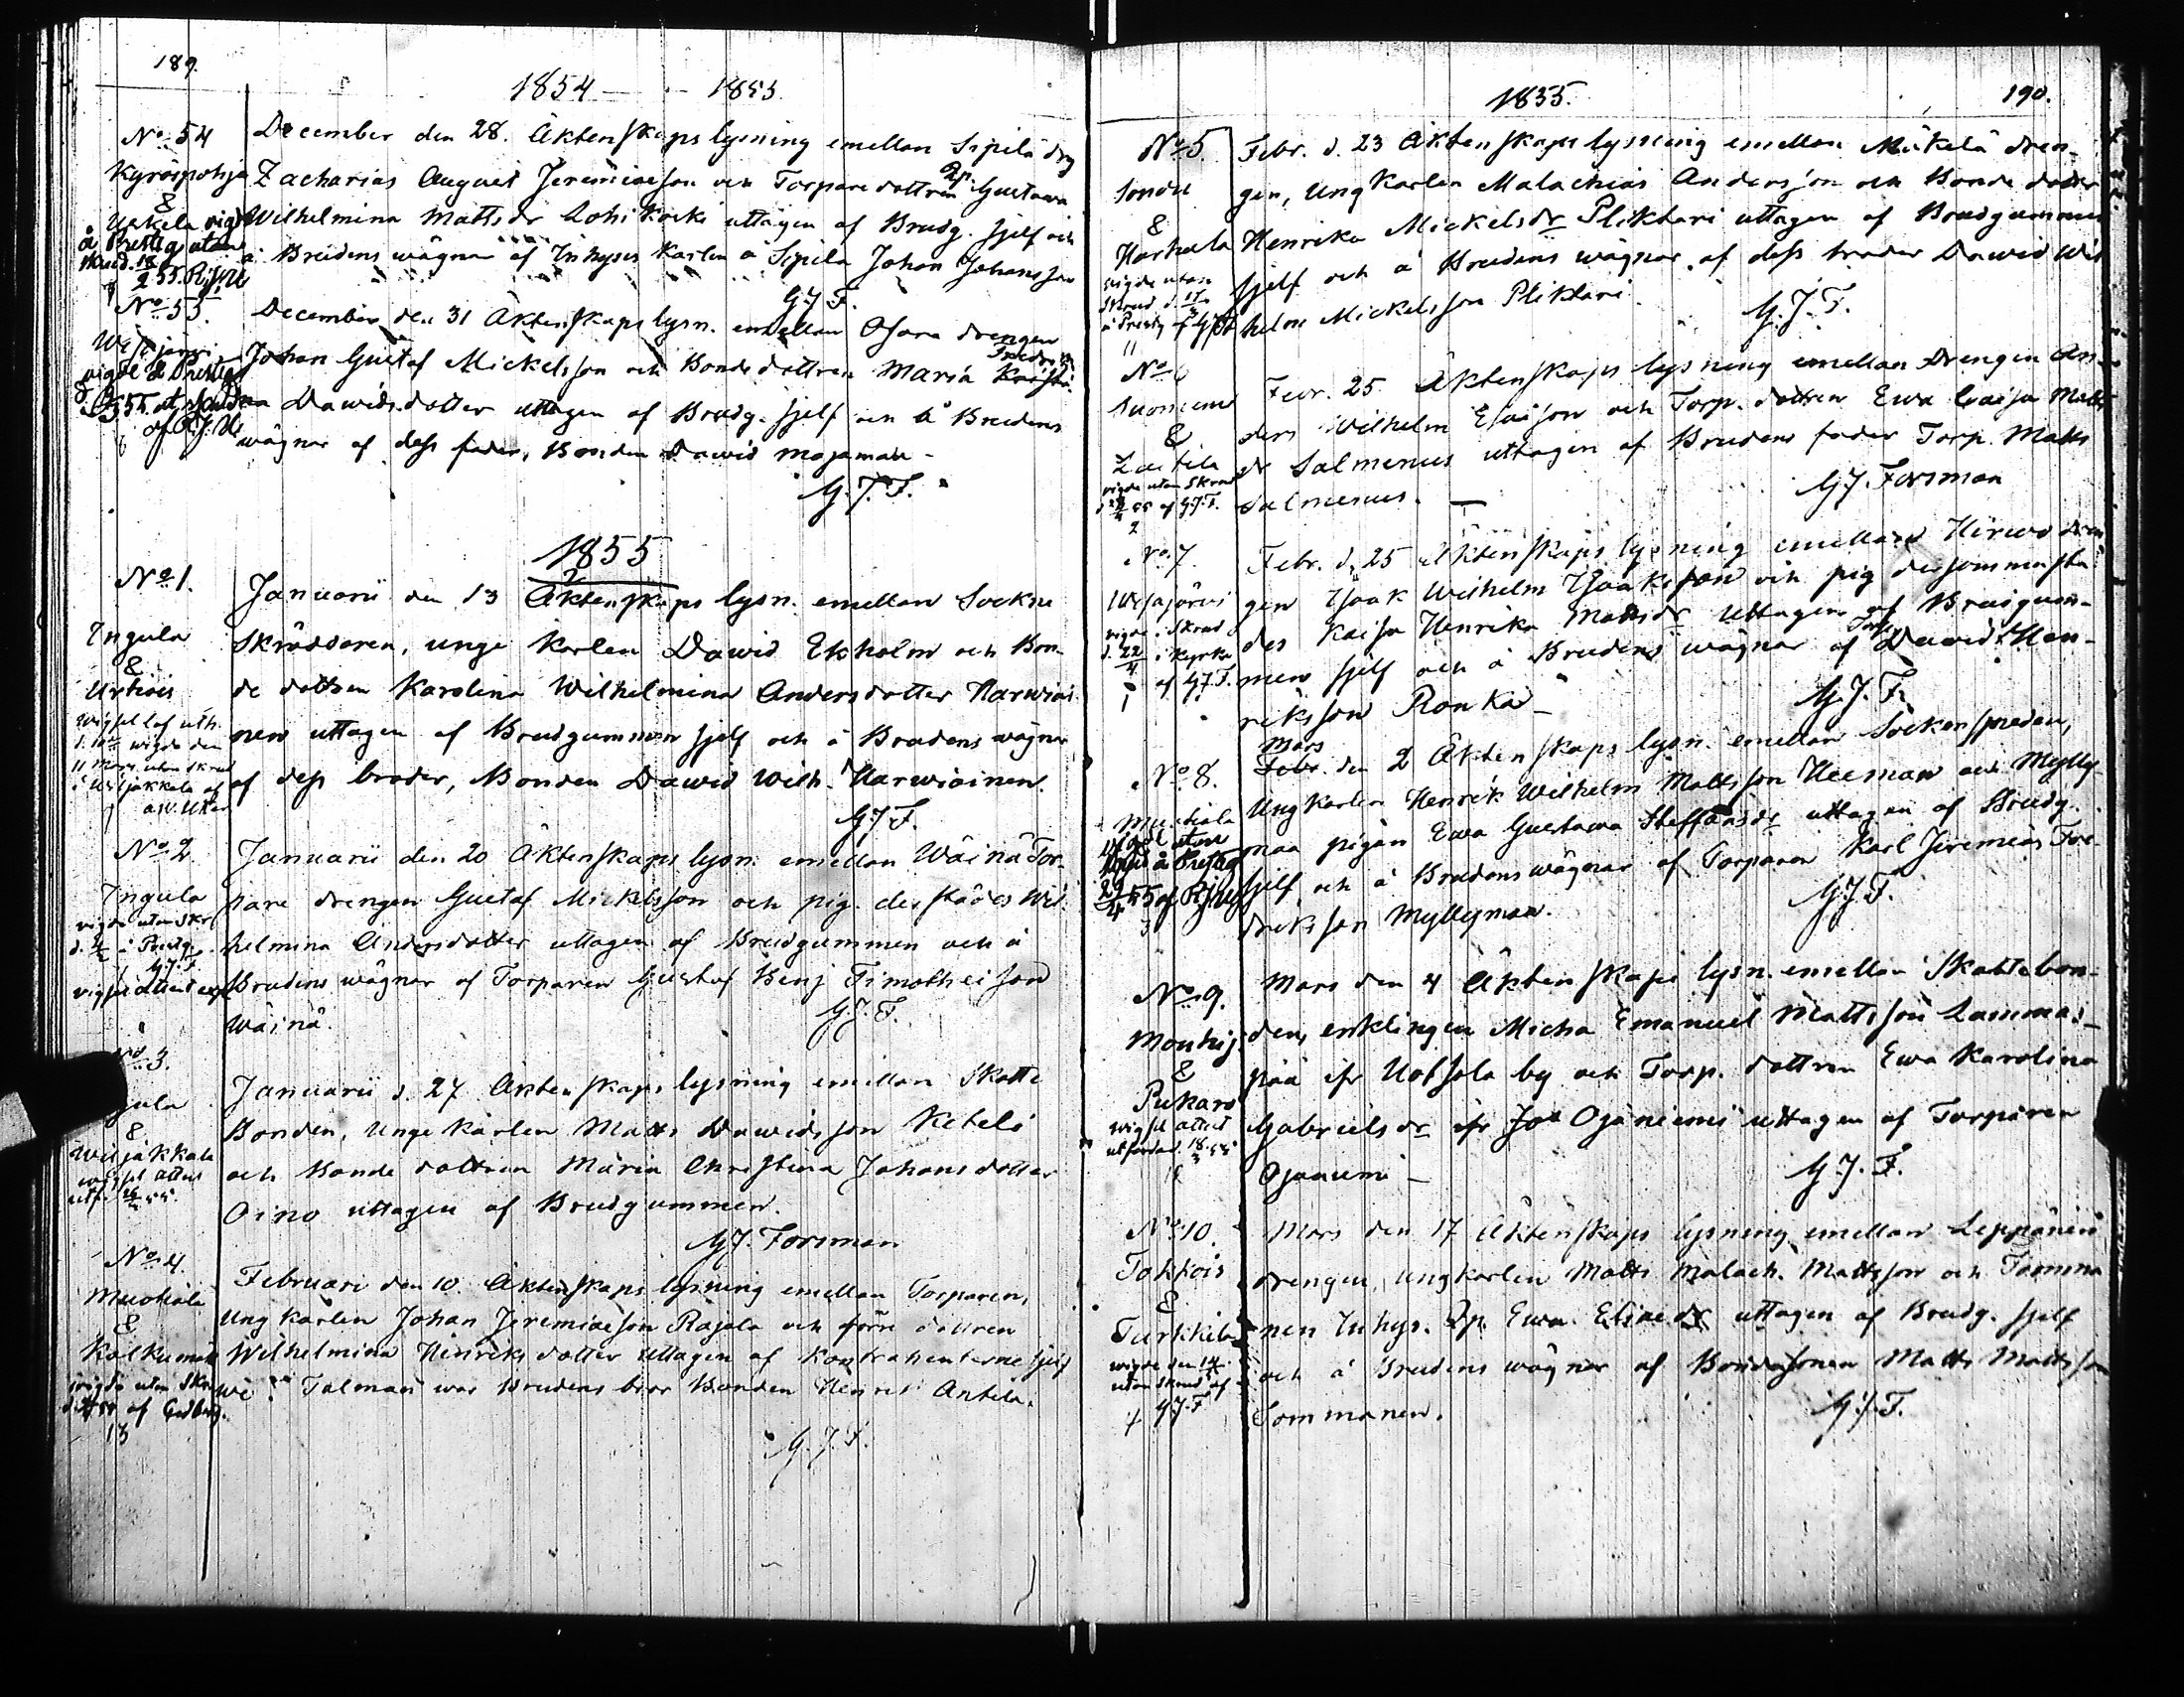 189.
1854 — 1855
No 54
Kyröspohja
&
Uskela vigd
å Prestg. utan
skrud. 18/2 55. R.J.U
December den 28. Äktenskaps lysning emellan Sipilä drg
Zacharias August Jeremiaeson och Torpare dottren Qp. Gustava
Wilhelmina Mattsdr Lohikoski uttagen af Brudg. sjelf och
å Brudens wägnar af Inhyses Karlen å Sipilä Johan Johansson
G.J.F.
No 55.
vigde å Prestg
55 ut. skrud
af R.J.U.
December den 31 Äktenskaps lysn. emellan Osara drengen
Johan Gustaf Mickelsson och Bonde dottren Maria Fredrika
na Dawidsdotter uttagen af Brudg. sjelf och å Brudens
wägnar af dess fader, Bonden Dawid Majamaa -
G.J.F.
1855
No 1.
Yngula
&
Urhiais
11 Mars utan skrud
i Wiljakkala af
Januarii den 13 Äktenskaps lysn. emellan Sockne
Skräddaren, unge karlen Dawid Ekholm och Bon-
de dottren Karolina Wilhelmina Andersdotter Harwiai
nen uttagen af Brudgummen sjelf och å Brudens wägnar
af dess broder, Bonden Dawid Wilh. Harwiainen.
G.J.F.
No 2
Yngula
vigde utan Skr
å Prestg.
G.J.F.
Januarii den 20 Äktenskaps lysn. emellan Wäinä Tor-
pare drengen Gustaf Mickelsson och pig. derstädes Wil-
helmina Andersdotter uttagen af Brudgummen och å
Brudens wägnar af Torparen Gustaf Benj Timotheison
Wäinä.
G.J.F.
No 3.
gula
&
Wiljakkala
wigsel attest
Januarii d. 27 Äktenskaps lysning emellan Skatte
Bonden, unge karlen Matts Dawidsson Keteli
och Bonde dottren Maria Christina Johansdotter
Oino uttagen af Brudgummen.
G.J. Forsman
No 4.
Muotiala
&
Kalkunmäki
vigde utan Skr
af Gedberg.
13
Februari den 10. Äktenskaps lysning emellan Torparen,
Ung karlen Johan Jeremiaeson Rajala och förre dottren
Wilhelmina Henriksdotter uttagen af Kontrahenterne sjelf
we. Talman war Brudens bror Bonden Henrik Antila.
G.J.F.
1855.
190.
No 5
Sondu
&
Harhala
vigde utan
Skrud d. 17/3
å Prestg. af GJF
11
Febr. d. 23 Äktenskaps lysning emellan Mäkelä dren-
gen, Ung karlen Malachias Andersson och Bonde dotter
Henrika Mickelsdr Pliktari uttagen af Brudgummen
sjelf och å Brudens wägnar af dess broder Dawid Wil-
helm Mickelsson Pliktari
G.J.F.
No 6
Suoniemi
&
vigde utan Skrud
55 af G.J.F.
2
Febr. 25 Äktenskaps lysning emellan Drengen An-
ders Wilhelm Esaison och Torp. dottren Ewa Caisa Matts
dr Salmenius uttagen af Brudens fader Torp. Matts
Salmenius. —
G.J. Forsman
No 7.
Wesajärvi
vigde i Skrud
d. 22/4 i Kyrka
af G.J.F.
1
Febr. d. 25 Äktenskaps lysning emellan Hirwo dren-
gen Isaak Wilhelm Isaaksson och pig dersammastä
des Kaisa Henrika Mattsdr uttagen af Brudgum-
men sjelf och å Brudens wägnar af Torp. Dawid Hen-
riksson Ronka —
G.J.F.
No 8.
Muotiala
vigde utan
Skrud å Prestg
29/4 55 af R.J.U
3
Mars
Febr. den 2 Äktenskaps lysn. emellan Sockensmeden,
Ungkarlen Henrik Wilhelm Mattsson Heeman och Mylly-
maa pigan Ewa Gustawa Steffansdr uttagen af Brudg.
sjelf och å Brudens wägnar af Torparen Karl Jeremias Fre-
driksson Myllymaa.
G.J.F.
No 9.
Mouhij.
&
Pukara
wigsel attest
utfärdad. 18/3 55
Mars den 4 Äktenskaps lysn. emellan Skattebon-
den, enklingen Micha Emanuel Mattsson Lammas-
pää ifr Uotsola by och Torp. dottren Ewa Karolina
Gabrielsdr ifr Joa Ojaniemi uttagen af Torparen
Ojaniemi —
G.J.F.
No 10.
Tokkois
&
Turkkila
wigde den 14/4
utan Skrud af
G.J.F
Mars den 17 Äktenskaps lysning emellan Leppäniemi
drengen, ungkarlen Matts Malach. Mattsson och Tomma
nen Inhys. Qp. Ewa Eliaedr uttagen af Brudg. sjelf
och å Brudens wägnar af Bondesonen Matts Mattsson
Sommanen.
G.J.F.